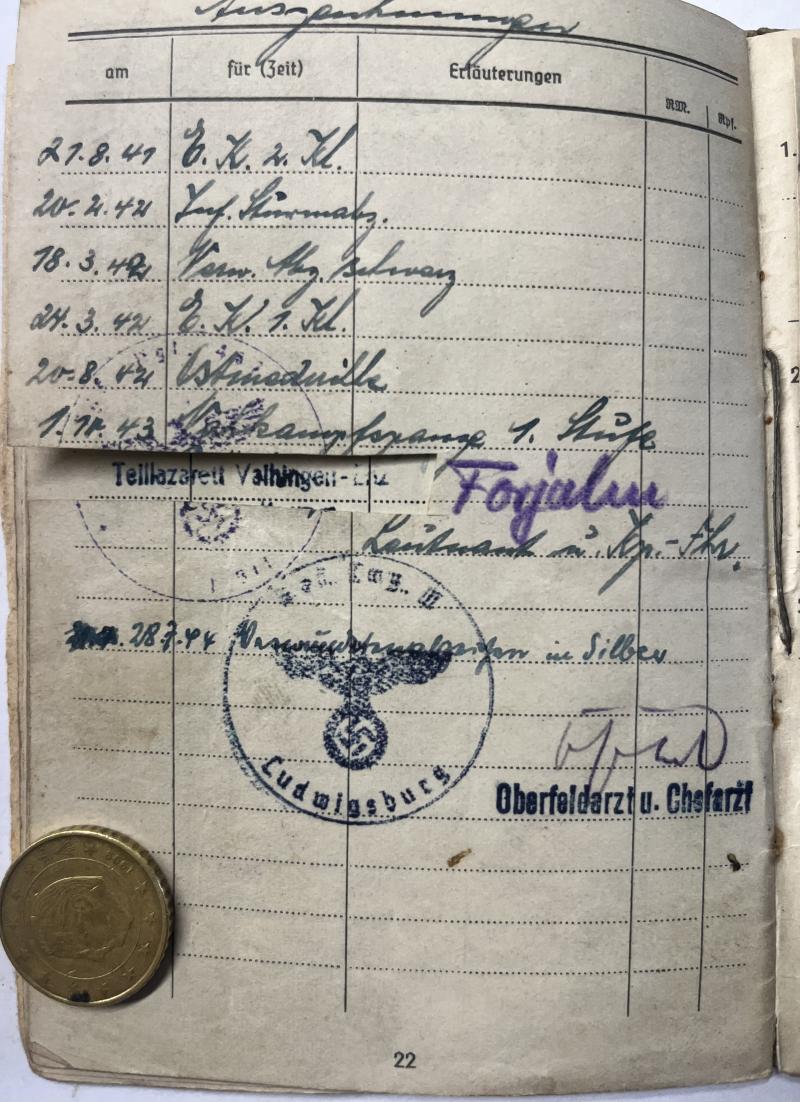 Auszeichnungen
am für (Zeit) Erläuterungen RM. Rpf.
21.8.41 E. K. 2. Kl.
20.2.42 Inf. Sturmabz.
18.3.42 Verw. Abz. schwarz
24.3.42 E. K. 1. Kl.
20.8.42 Ostmedaille
43 Nahkampfspange 1. Stufe
Teillazarett Vaihingen-Enz
Leutnant u. Kp.-Fhr.
28.7.44 Verwundetenabzeichen in Silber
Ludwigsburg
Oberfeldarzt u. Chefarzt
22
1.
2